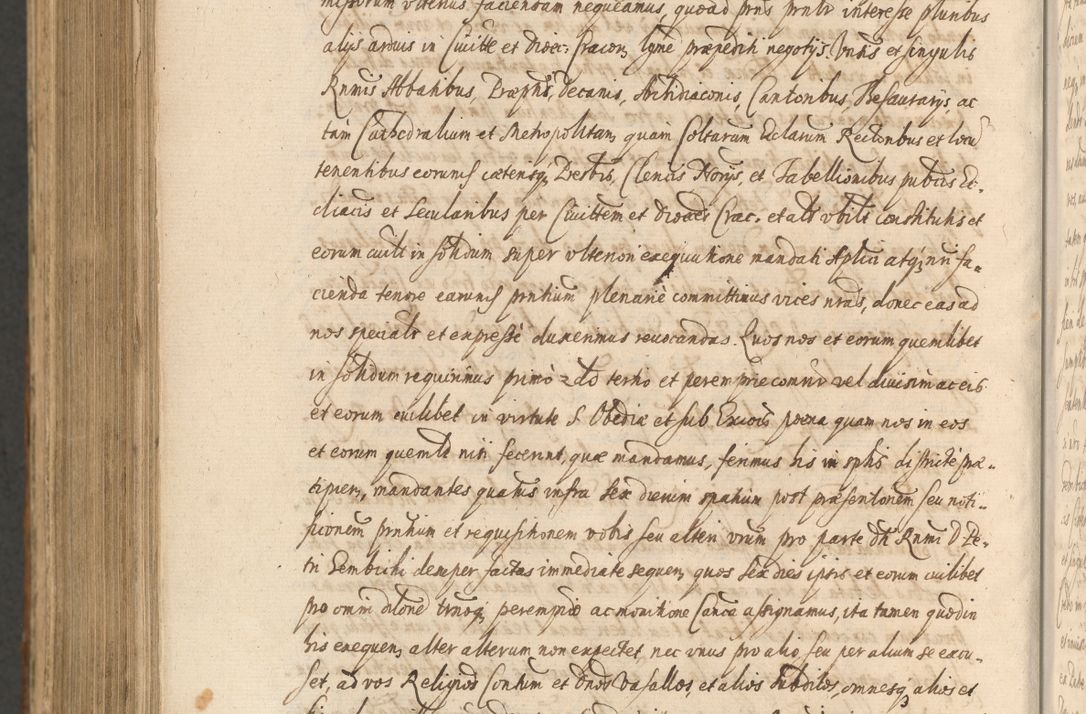 missorum ulterius faciendam nequeamus, quoad pñs pñtbr interesse pluribus
alijs arduis in Ciuitte et Dioec: Cracoñ, lgme præpediti negotijs. Vnis et singulis
Rnmis Abbatibus, Præptis, Decanis, Archidiaconis, Cantoribus, Thesaurarijs, ac
tam Cathedralium et Metropolitan, quam Coltarum Ecclarum Rectoribus et locu
tenentibus eorumq cæterisq, Præsbris, Clericis Norijs, et Tabellionibus publicis Ec-
cliacis et Secularibus per Ciuittem et Dioaes Crac. et alr vbilt constitutis et
eorum cuilt in solidum super vlteriori exequutione mandati Aplici atq, nri fa-
cienda tenore earumq pñtium plenariè committimus vices nras, donec eas ad
nos specialr et expressè duxerimus reuocandas. Quos nos et eorum quemlibet
in solidum requirimus primò 2do tertio et peremprie comnir vel diuisim ac eis
et eorum cuilibet in virtute S. Obediæ et sub Excois poena quam nos in eos
et eorum quemlt nisi fecerint, quæ mandamus, ferimus his in sptis districtè præ-
cipien, mandantes quatus infra sex dierum spatium post præsentonem seu noti-
ficionem pñtium et requisitionem vobis seu alteri vrum pro parte dti Rnmi D Pe-
tri Gembicki desuper factas immediate sequen, quos sex dies ipsis et eorum cuilibet
pro omni dilone trinaq, peremprio ac monitione Canca assignamus, ita tamen quod in
his exequen, alter alterum non expectet, nec vnus pro alio seu per alium se excu-
set, ad vos Religios Contum et Dnos Vasallos, et alios Subditos, omnesq, alios et